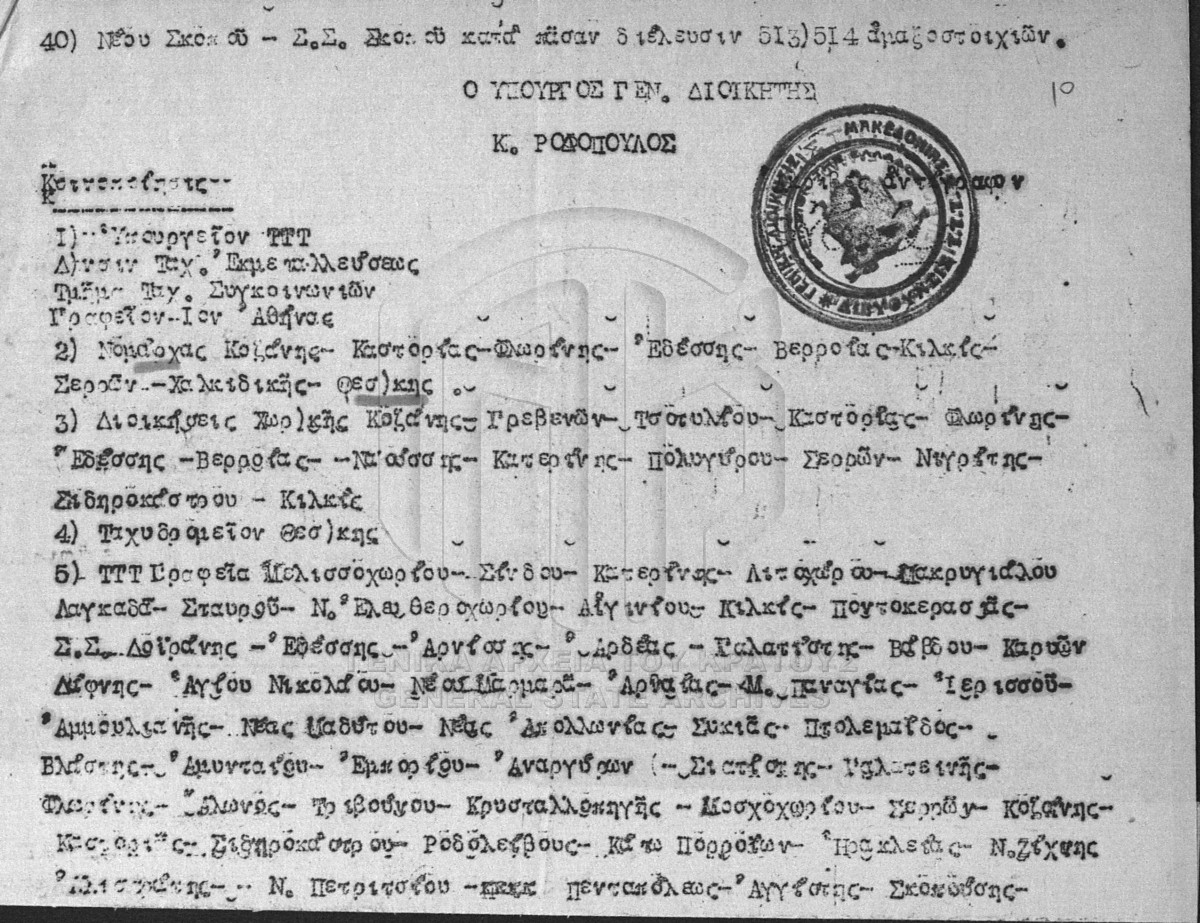 40) Νέου Σκοποῦ - Σ.Σ. Σκοποῦ κατά πᾶσαν διέλευσιν 513)514 ἁμαξοστοιχιῶν.
Ο ΥΠΟΥΡΓΟΣ ΓΕΝ. ΔΙΟΙΚΗΤΗΣ
10
Κ. ΡΟΦΟΠΟΥΛΟΣ
Κοινοποίησις
I) Ὑπουργεῖον ΤΤΤ
Δ)νσιν Ταχ. Ἐκμεταλλεύσεως
Τμῆμα Ταχ. Συγκοινωνιῶν
Γραφεῖον Ιον Ἀθήνας
2) Νομάρχας Κοζάνης- Καστορίας-Φλωρίνης- Ἐδέσσης- Βερροίας-Κιλκίς-
Σερρῶν -Χαλκιδικῆς- Θεσ)κης .
3) Διοικήσεις Χωρ)κῆς Κοζάνης- Γρεβενῶν- Τσοτυλίου- Καστορίας- Φλωρίνης-
Ἐδέσσης -Βερροίας- -Ναούσσης- Κατερίνης- Πολυγύρου- Σερρῶν- Νιγρίτης-
Σιδηροκάστρου - Κιλκίς
4) Ταχυδρομεῖον Θεσ)κης
5) ΤΤΤ Γραφεῖα Μελισσοχωρίου- Σίνδου- Κατερίνης- Λιτοχώρου- Μακρυγιάλου
Λαγκαδᾶ- Σταυροῦ- Ν. Ἐλευθεροχωρίου- Αἰγινίου- Κιλκίς- Ποντοκερασιᾶς-
Σ.Σ. Δοϊράνης - Ἐδέσσης - Ἀρνίσσης- Ἀρδέας - Γαλατίστης- Βάβδου- Καρυῶν
Δάφνης- Ἁγίου Νικολάου- Νέου Μαρμαρᾶ- Ἀρναίας- Μ. Παναγίας- Ἱερισσοῦ-
Ἀμμουλιανῆς- Νέας Μαδύτου- Νέας Ἀπολλωνίας- Συκιᾶς- Πτολεμαΐδος-
Βλάστης- Ἀμυνταίου- Ἐμπορίου- Ἀναργύρων (- Σιατίστης- Γαλατεινῆς-
Φλωρίνης- Ἀλωνος- Τριβούνου- Κρυσταλλοπηγῆς - Μοσχοχωρίου- Σερρῶν- Κοζάνης-
Καστοριᾶς- Σιδηροκάστρου- Ροδολείβους- Κάτω Πορροΐων- Ἡρακλείας- Ν.Ζίχνης
Ἀλιστράτης- Ν. Πετριτσίου - Πενταπόλεως- Ἀγγίστης- Σκοπούσης-
ΓΕΝΙΚΑ ΑΡΧΕΙΑ ΤΟΥ ΚΡΑΤΟΥΣ
GENERAL STATE ARCHIVES